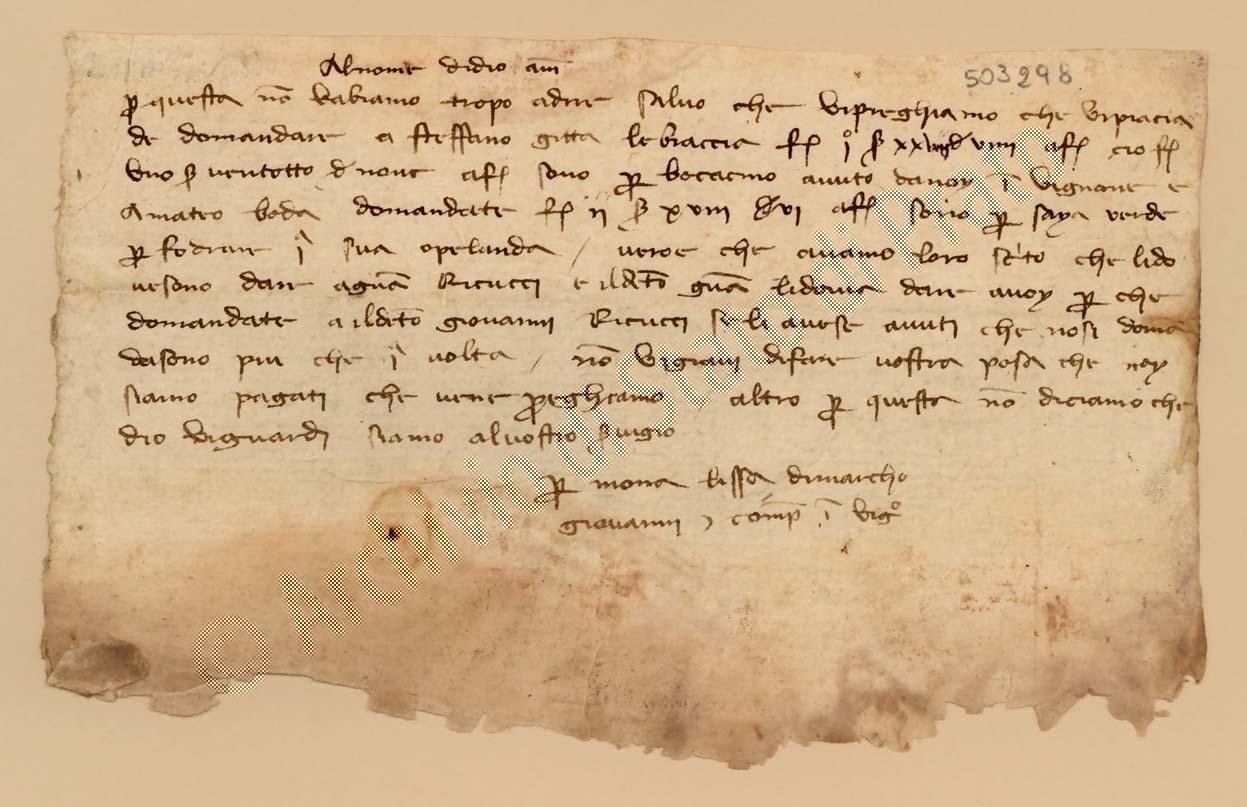 Al nome didio am
503298
p questa nō vabiamo tropo adire salvo che vipreghiamo che vipiacia
de domandare a steffano gitta lebraccia fj j° s xxviiij d viiii afj cio fj
vno s ventotto d nove afj sono p bocacino avuto danoy ī vignone e
Amateo boda domandate fj ij s xviii d vi afj sono p saya verde
p foderare jᵃ sua opelanda / veroe che aviamo loro scrito che lido
vesono dare aguāⁱ Ricucci e ildetō guāⁱ lidovia dare avoy p che
domandate aildetō giovanni Ricucci seli avese avuti che nosi domā
dasono piu che jᵃ volta / nō vigravi difare vostra posa che noy
siamo pagati che vene preghiamo / altro p questa nō diciamo che
dio viguardi siamo alvostro s̄vigio
p mona lissa dimarcho
giovanni j comp ī vigᵒ
© Archivio di Stato di Prato